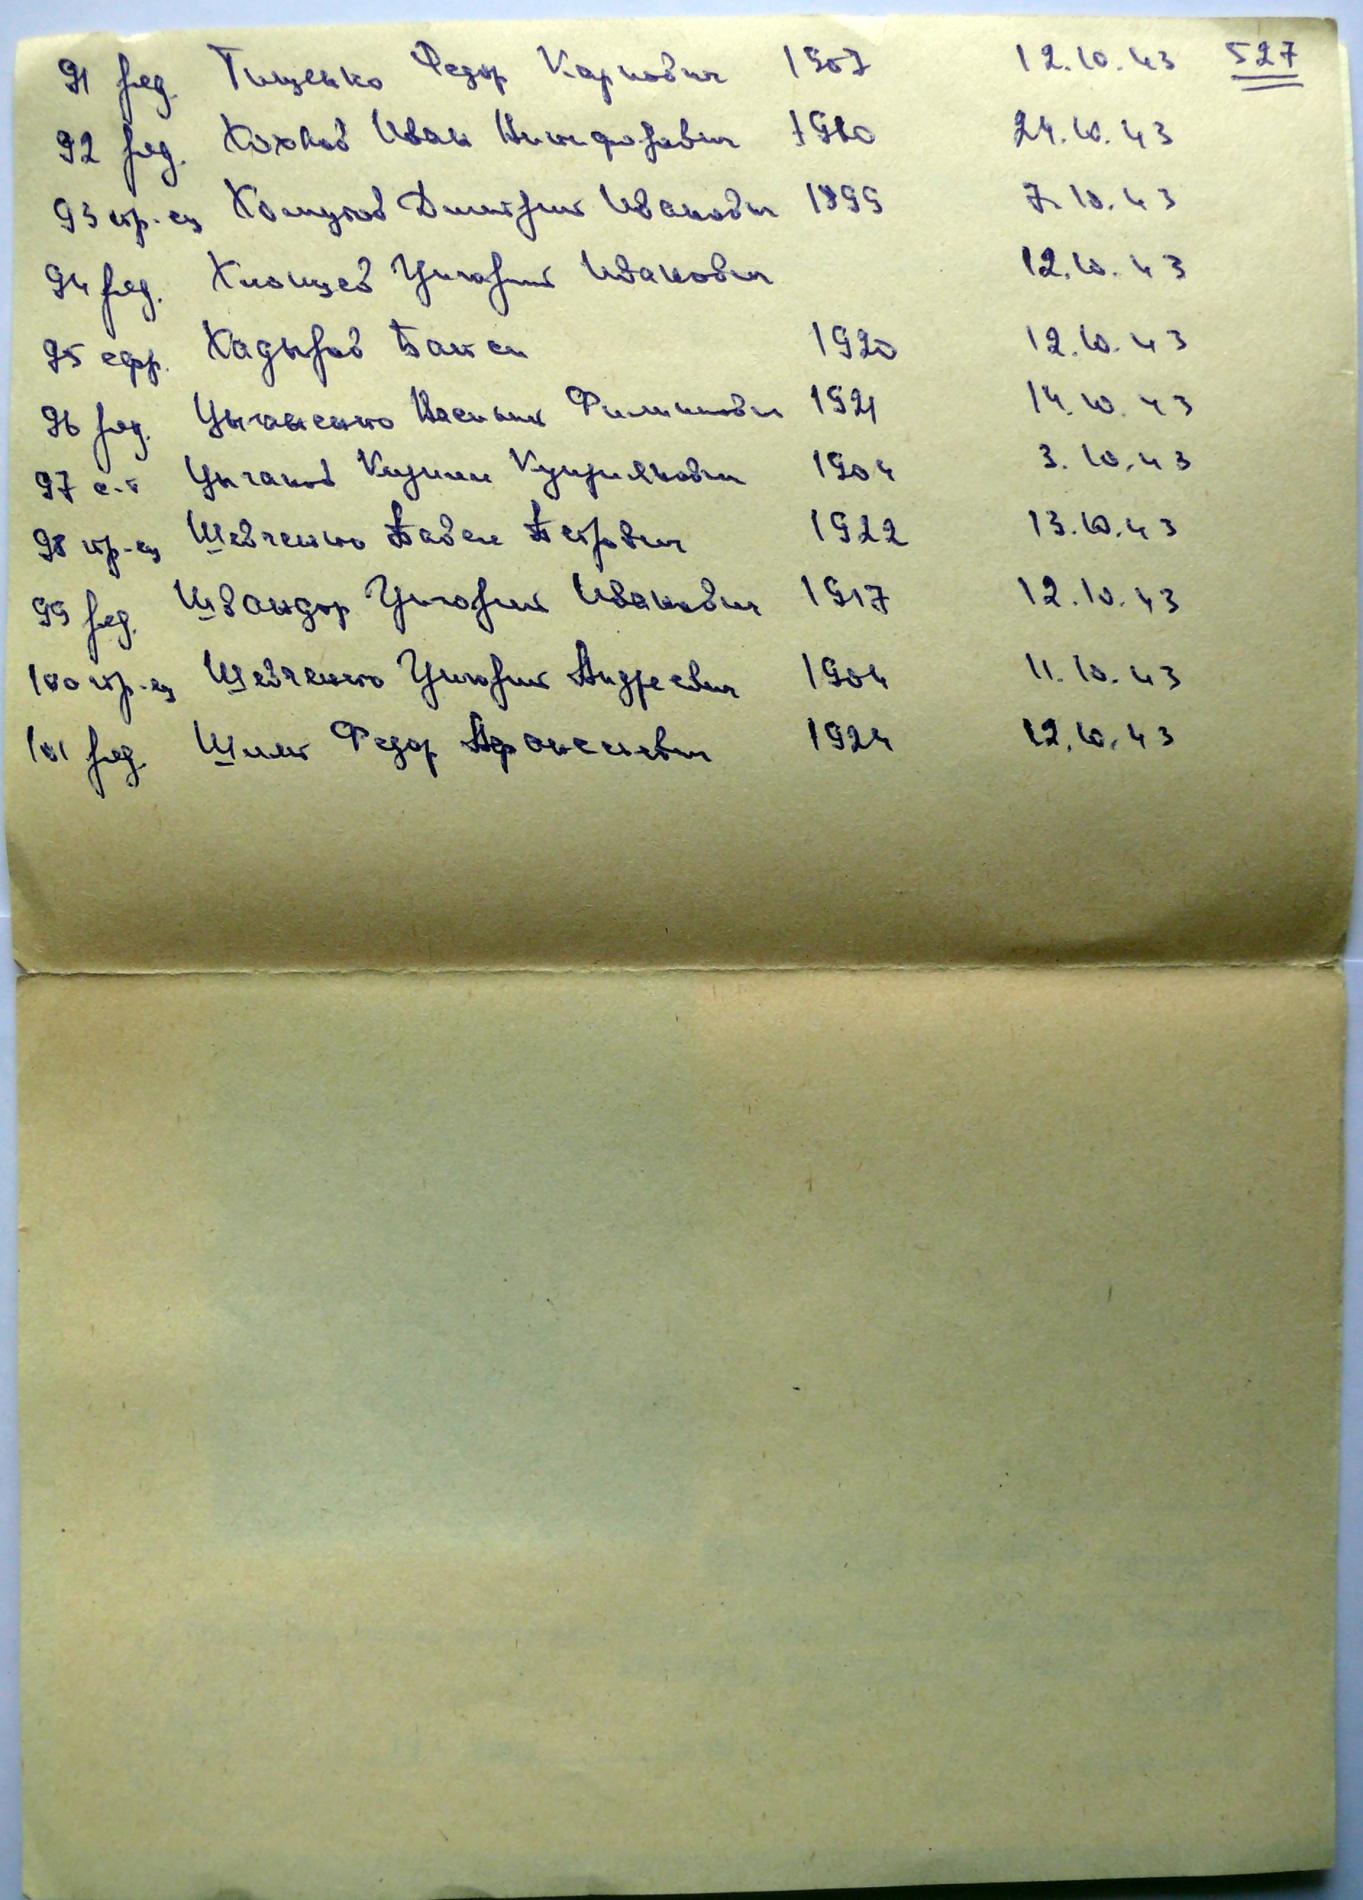 91 ряд. Тищенко Федор Карпович 1907 12.10.43 527
92 ряд. Хохлов Иван Никифорович 1910 24.10.43
93 кр-ец Хомутов Дмитрий Иванович 1899 7.10.43
94 ряд. Григорий Иванович 12.10.43
95 ефр. Хадыров 1920 12.10.43
96 ряд. Цыганенко Василий Филиппович 1921 14.10.43
97 с-т Цыганов Кирилл Куприянович 1904 3.10.43
98 кр-ец Шевченко Павел Петрович 1922 13.10.43
99 ряд. Швандор Григорий Иванович 1917 12.10.43
100 кр-ец Шевченко Григорий Андреевич 1904 11.10.43
101 ряд. Федор 1924 12.10.43